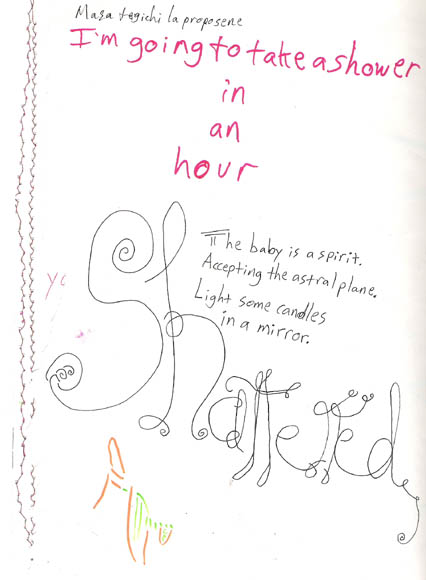 Mara tegichi la proposene
I'm going to take a shower
in
an
hour
The baby is a spirit.
Accepting the astral plane.
Light some candles
in a mirror.
Shattered